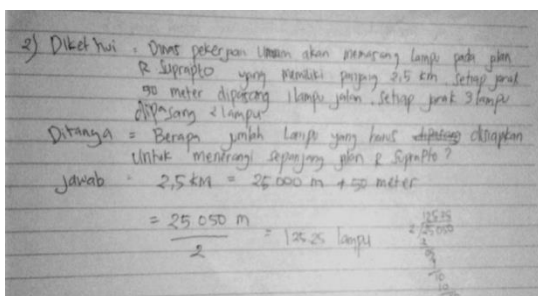 2) Diket hui : Dinas pekerjaan Umum akan memasang lampu pada jalan
R Suprapto yang memiliki panjang 2,5 km. setiap jarak
50 meter dipasang 1 lampu jalan. setiap jarak 3 lampu
dipasang 2 lampu
Ditanya = Berapa jumlah lampu yang harus disiapkan
Untuk menerangi sepanjang jalan R Suprapto ?
Jawab : 2,5 KM = 25 000 m + 50 meter
= 25 050 m
2
= 125 25 lampu
12525
2 25 050
2